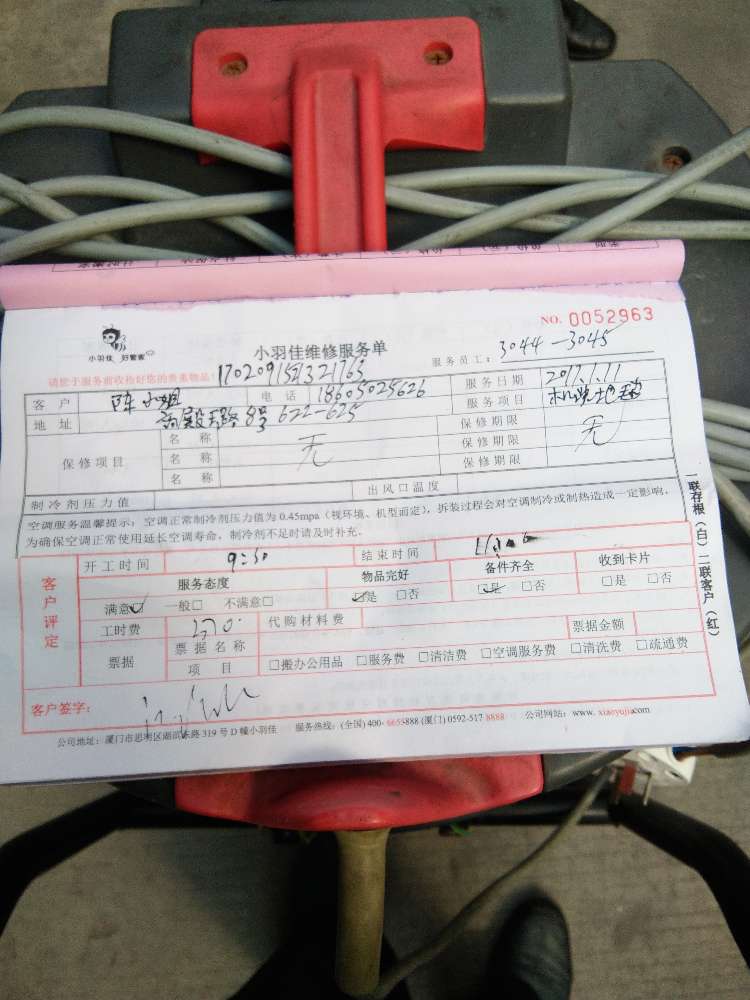 NO. 0052963
小羽佳 好管家
小羽佳维修服务单
服务员工：3044-3045
请您于服务前收拾好您的贵重物品！
客户 陈小姐 电话 18605025626 服务日期 2017.1.11
地址 路8号622-625 服务项目 机洗地毯
保修项目 名称 无 保修期限 无
名称 保修期限
名称 保修期限
制冷剂压力值 出风口温度
空调服务温馨提示：空调正常制冷剂压力值为0.45mpa（视环境、机型而定），拆装过程会对空调制冷或制热造成一定影响，
为确保空调正常使用延长空调寿命，制冷剂不足时请及时补充。
客户评定
开工时间 9:30 结束时间
服务态度 物品完好 备件齐全 收到卡片
满意☑ 一般□ 不满意□ ☑是 □否 ☑是 □否 □是 □否
工时费 270 代购材料费
票据 票据名称 票据金额
项目 □搬办公用品 □服务费 □清洁费 □空调服务费 □清洗费 □疏通费
客户签字：
公司地址：厦门市思明区湖滨东路319号D幢小羽佳 服务热线：(全国)400-6655888 (厦门)0592-517 8888 公司网站：www.xiaoyujia.com
一联存根（白）二联客户（红）